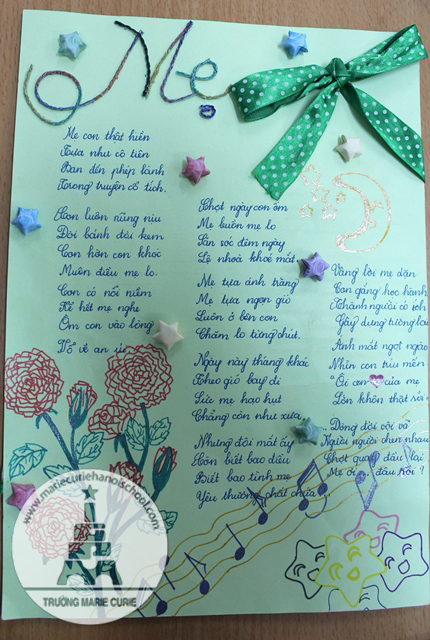 Mẹ
Mẹ con thật hiền
Tựa như cô tiên
Ban đến phép lành
Trong truyện cổ tích.
Con luôn nũng nịu
Đòi bánh đòi kem
Con hờn con khóc
Muôn điều mẹ lo.
Con có nỗi niềm
Kể hết mẹ nghe
Ôm con vào lòng
Vỗ về an ủi
Chợt ngày con ốm
Mẹ buồn mẹ lo
Săn sóc đêm ngày
Lệ nhoà khoé mắt.
Mẹ tựa ánh trăng
Mẹ tựa ngọn gió
Luôn ở bên con
Chăm lo từng chút.
Ngày này tháng khác
Theo gió bay đi
Sức mẹ hao hụt
Chẳng còn như xưa.
Nhưng đôi mắt ấy
Còn biết bao điều
Biết bao tình mẹ
Yêu thương phất
Vâng lời mẹ dặn
Con gắng học hành
Thành người có ích
Gây dựng tương lai
Ánh mắt ngọt ngào
Nhìn con trìu mến
"Ôi con của mẹ
Lớn khôn thật rồi
Dòng đời vội vã
Người người chen nhau
Chợt quay đầu lại
Mẹ ơi, đâu rồi?
www.mariecuriehanoischool.com
TRƯỜNG MARIE CURIE